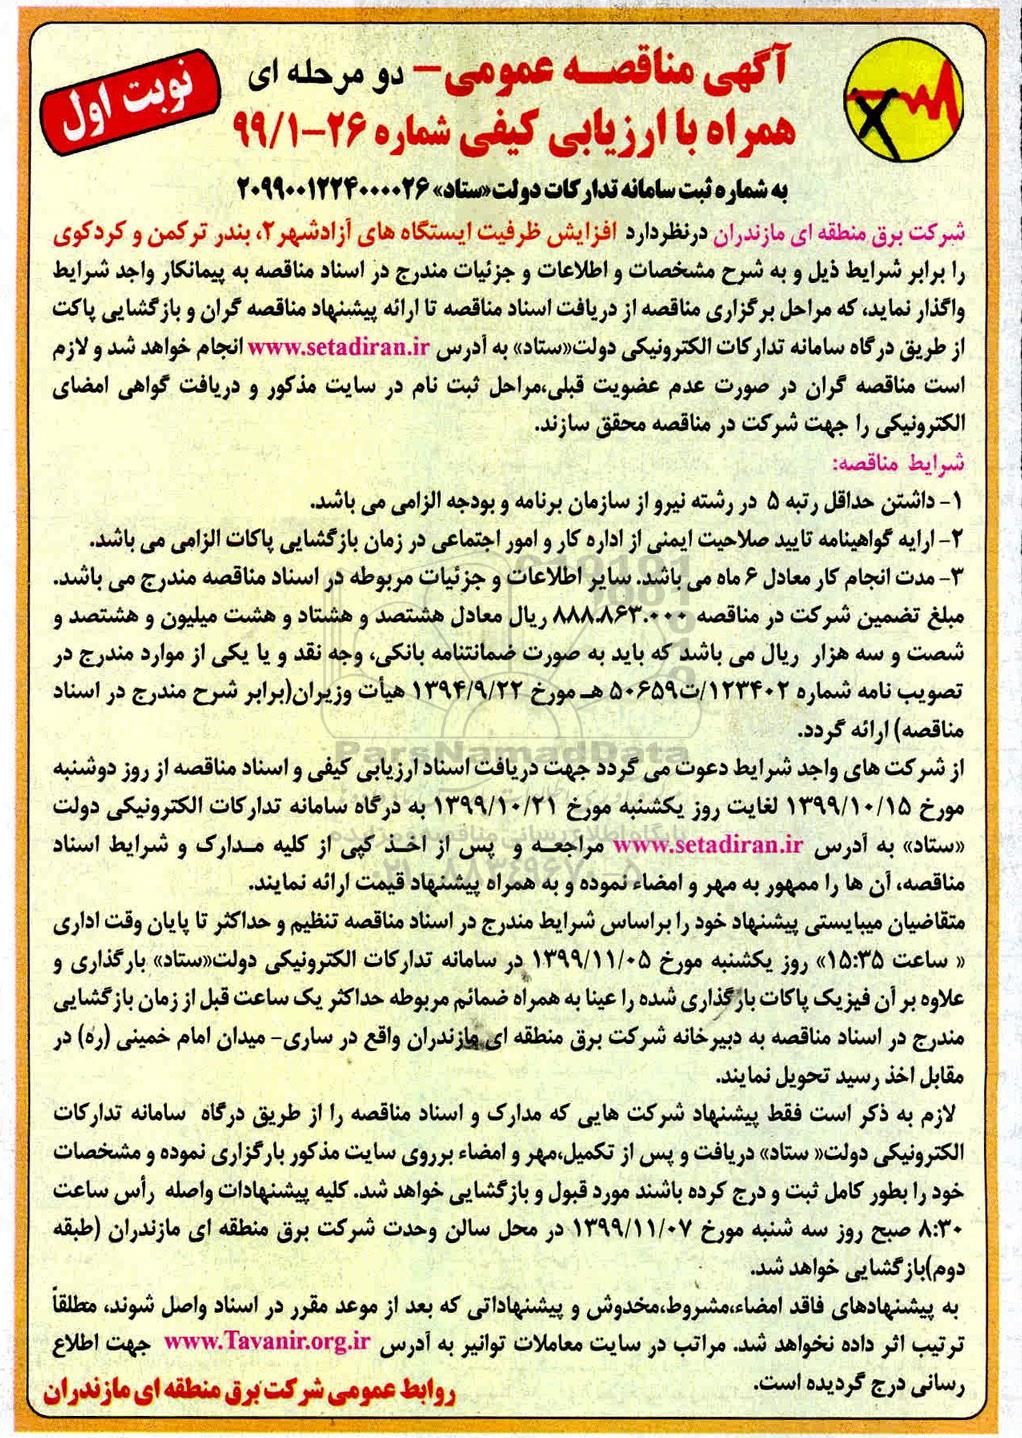 آگهی مناقصه عمومی- دو مرحله ای
همراه با ارزیابی کیفی شماره ۲۶-۹۹/۱
نوبت اول
به شماره ثبت سامانه تدارکات دولت«ستاد» ۲۰۹۹۰۰۱۲۲۴۰۰۰۰۲۶
شرکت برق منطقه ای مازندران درنظردارد افزایش ظرفیت ایستگاه های آزادشهر۲، بندر ترکمن و کردکوی
را برابر شرایط ذیل و به شرح مشخصات و اطلاعات و جزئیات مندرج در اسناد مناقصه به پیمانکار واجد شرایط
واگذار نماید، که مراحل برگزاری مناقصه از دریافت اسناد مناقصه تا ارائه پیشنهاد مناقصه گران و بازگشایی پاکت
از طریق درگاه سامانه تدارکات الکترونیکی دولت«ستاد» به آدرس www.setadiran.ir انجام خواهد شد و لازم
است مناقصه گران در صورت عدم عضویت قبلی،مراحل ثبت نام در سایت مذکور و دریافت گواهی امضای
الکترونیکی را جهت شرکت در مناقصه محقق سازند.
شرایط مناقصه:
۱- داشتن حداقل رتبه ۵ در رشته نیرو از سازمان برنامه و بودجه الزامی می باشد.
۲- ارایه گواهینامه تایید صلاحیت ایمنی از اداره کار و امور اجتماعی در زمان بازگشایی پاکات الزامی می باشد.
۳- مدت انجام کار معادل ۶ ماه می باشد. سایر اطلاعات و جزئیات مربوطه در اسناد مناقصه مندرج می باشد.
مبلغ تضمین شرکت در مناقصه ۸۸۸.۸۶۳.۰۰۰ ریال معادل هشتصد و هشتاد و هشت میلیون و هشتصد و
شصت و سه هزار ریال می باشد که باید به صورت ضمانتنامه بانکی، وجه نقد و یا یکی از موارد مندرج در
تصویب نامه شماره ۱۲۳۴۰۲/ت۵۰۶۵۹ هـ مورخ ۱۳۹۴/۹/۲۲ هیأت وزیران(برابر شرح مندرج در اسناد
مناقصه) ارائه گردد.
ParsNamadData
از شرکت های واجد شرایط دعوت می گردد جهت دریافت اسناد ارزیابی کیفی و اسناد مناقصه از روز دوشنبه
مورخ ۱۳۹۹/۱۰/۱۵ لغایت روز یکشنبه مورخ ۱۳۹۹/۱۰/۲۱ به درگاه سامانه تدارکات الکترونیکی دولت
«ستاد» به آدرس www.setadiran.ir مراجعه و پس از اخذ کپی از کلیه مدارک و شرایط اسناد
مناقصه، آن ها را ممهور به مهر و امضاء نموده و به همراه پیشنهاد قیمت ارائه نمایند.
متقاضیان میبایستی پیشنهاد خود را براساس شرایط مندرج در اسناد مناقصه تنظیم و حداکثر تا پایان وقت اداری
« ساعت ۱۵:۳۵» روز یکشنبه مورخ ۱۳۹۹/۱۱/۰۵ در سامانه تدارکات الکترونیکی دولت«ستاد» بارگذاری و
علاوه بر آن فیزیک پاکات بارگذاری شده را عینا به همراه ضمائم مربوطه حداکثر یک ساعت قبل از زمان بازگشایی
مندرج در اسناد مناقصه به دبیرخانه شرکت برق منطقه ای مازندران واقع در ساری- میدان امام خمینی (ره) در
مقابل اخذ رسید تحویل نمایند.
لازم به ذکر است فقط پیشنهاد شرکت هایی که مدارک و اسناد مناقصه را از طریق درگاه سامانه تدارکات
الکترونیکی دولت« ستاد» دریافت و پس از تکمیل،مهر و امضاء برروی سایت مذکور بارگزاری نموده و مشخصات
خود را بطور کامل ثبت و درج کرده باشند مورد قبول و بازگشایی خواهد شد. کلیه پیشنهادات واصله رأس ساعت
۸:۳۰ صبح روز سه شنبه مورخ ۱۳۹۹/۱۱/۰۷ در محل سالن وحدت شرکت برق منطقه ای مازندران (طبقه
دوم)بازگشایی خواهد شد.
به پیشنهادهای فاقد امضاء،مشروط،مخدوش و پیشنهاداتی که بعد از موعد مقرر در اسناد واصل شوند، مطلقاً
ترتیب اثر داده نخواهد شد. مراتب در سایت معاملات توانیر به آدرس www.Tavanir.org.ir جهت اطلاع
رسانی درج گردیده است.
روابط عمومی شرکت برق منطقه ای مازندران